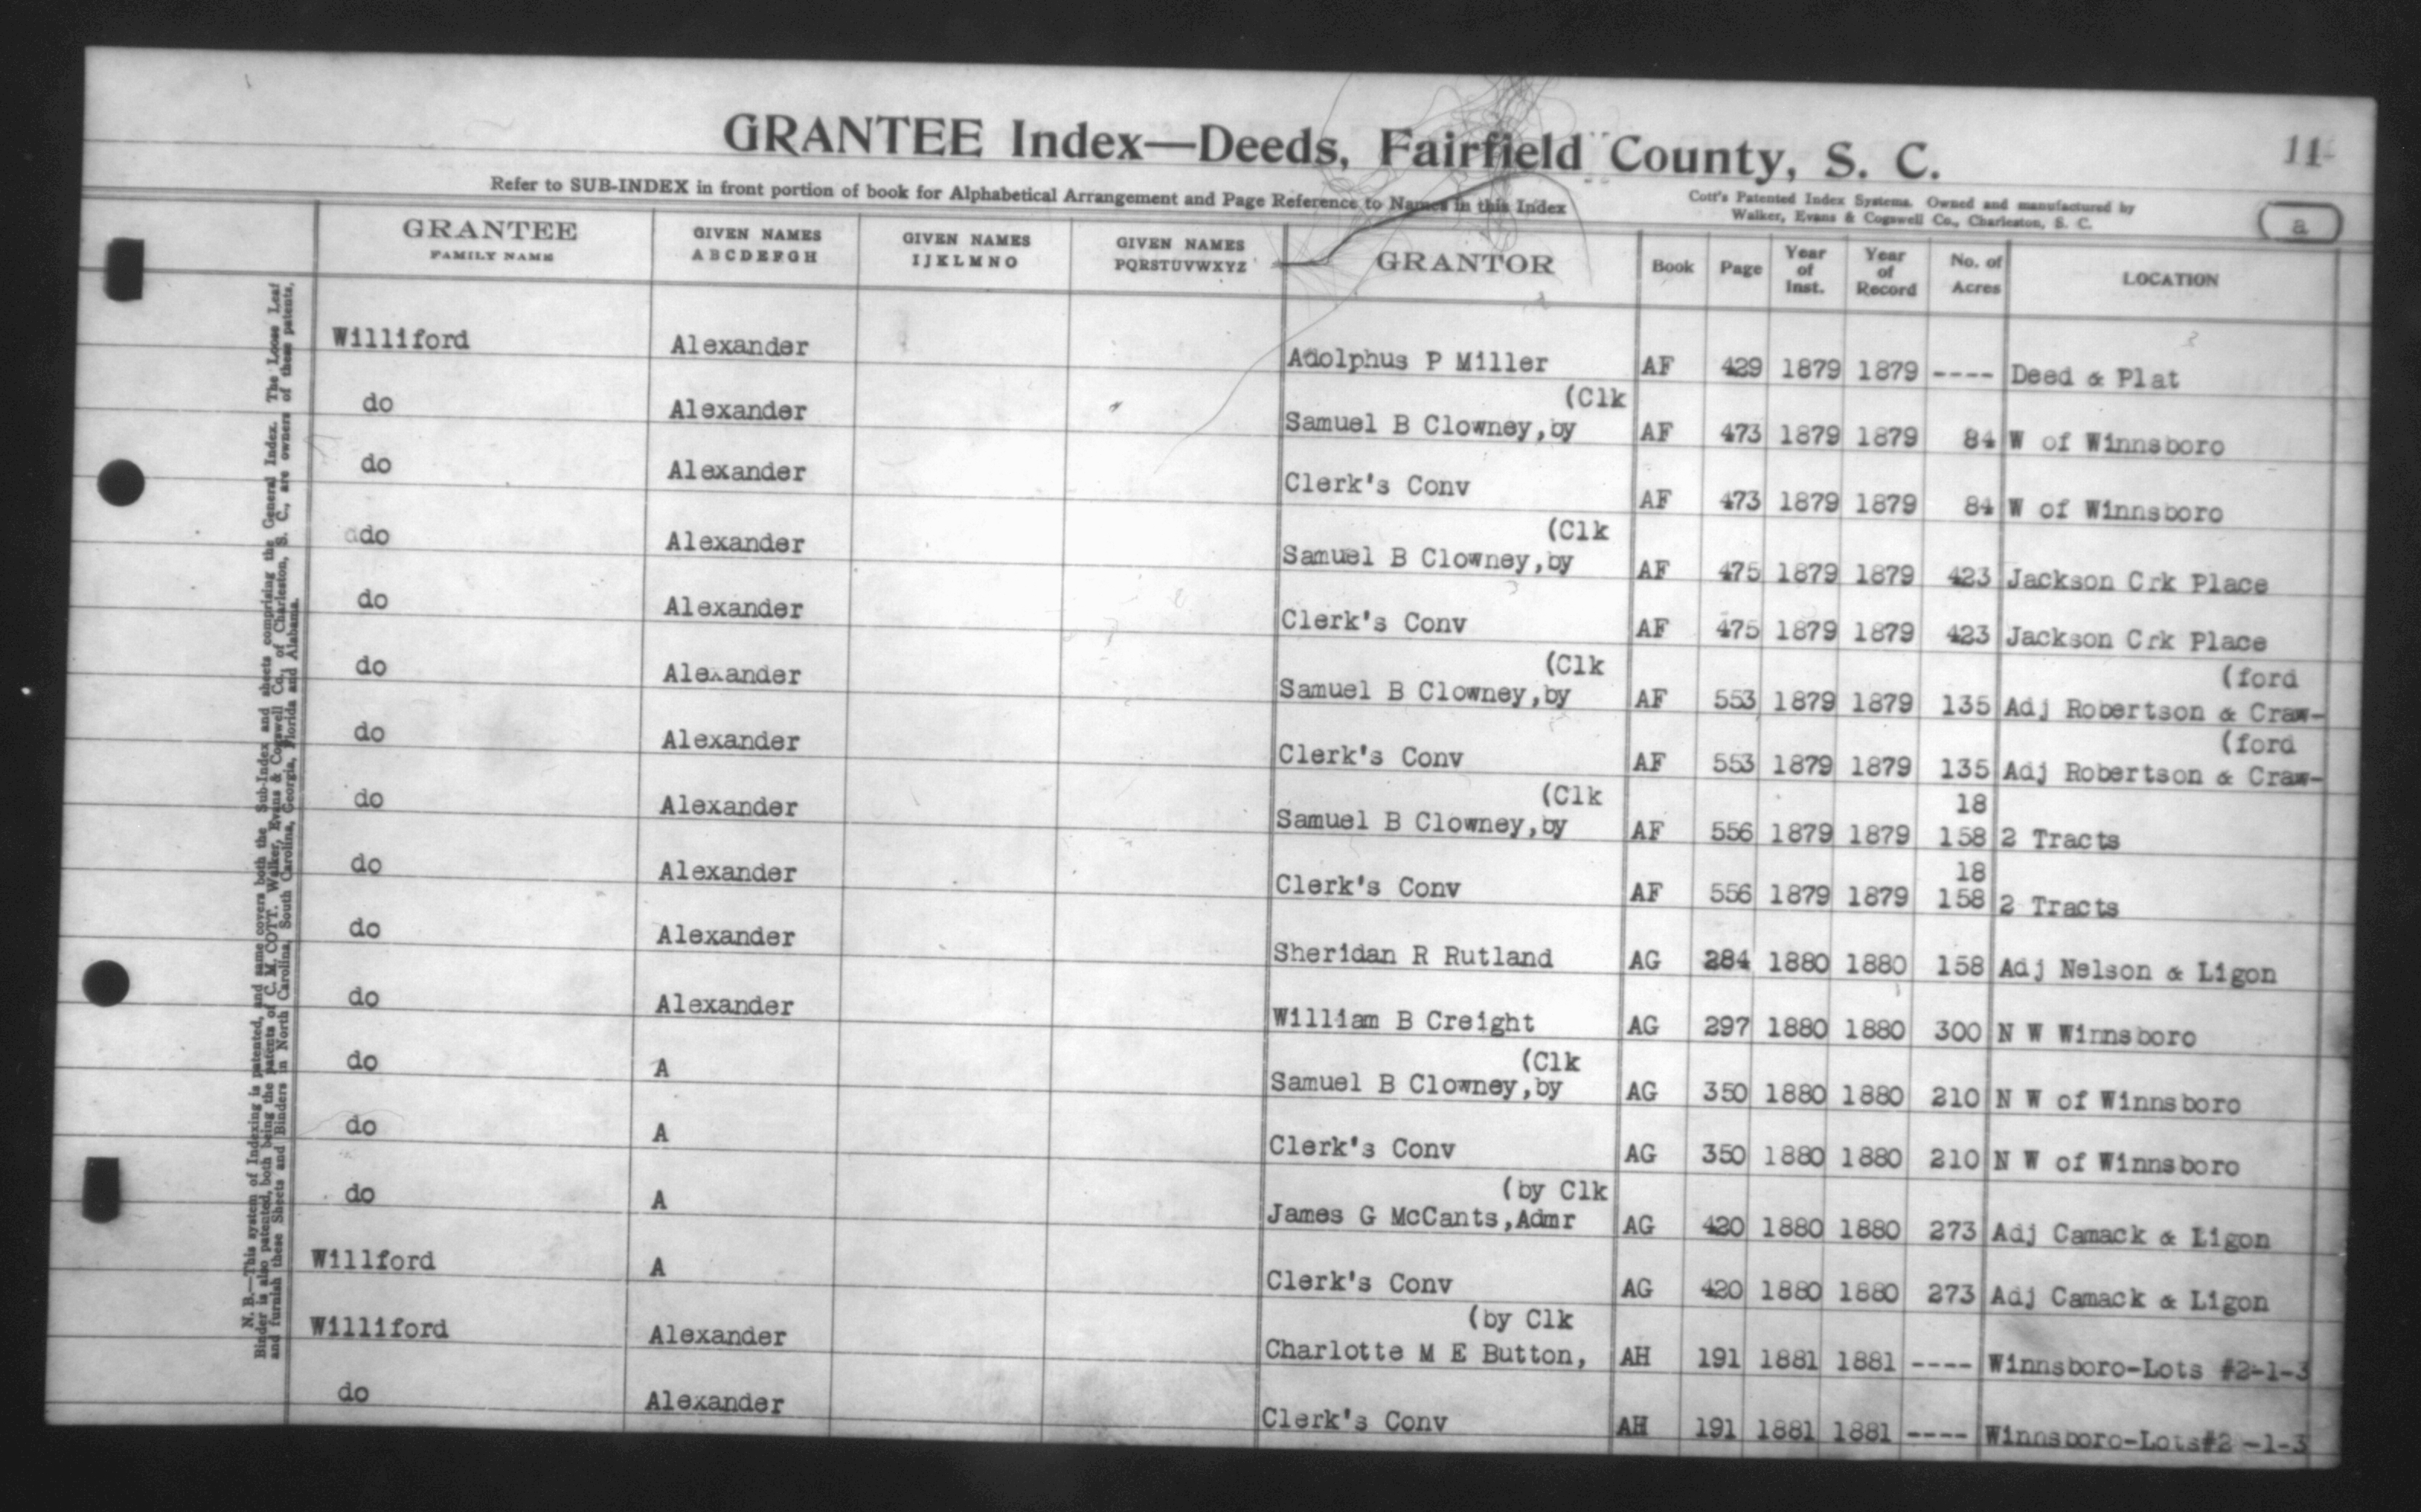 GRANTEE Index—Deeds, Fairfield County, S. C.
11
Refer to SUB-INDEX in front portion of book for Alphabetical Arrangement and Page Reference to Names in this Index
Cott's Patented Index Systems. Owned and manufactured by
Walker, Evans & Cogswell Co., Charleston, S. C.
a
GRANTEE FAMILY NAME GIVEN NAMES ABCDEFGH GIVEN NAMES IJKLMNO GIVEN NAMES PQRSTUVWXYZ GRANTOR Book Page Year of Inst. Year of Record No. of Acres LOCATION
Williford Alexander Adolphus P Miller AF 429 1879 1879 ---- Deed & Plat
(Clk
do Alexander Samuel B Clowney,by AF 473 1879 1879 84 W of Winnsboro
do Alexander Clerk's Conv AF 473 1879 1879 84 W of Winnsboro
(Clk
do Alexander Samuel B Clowney,by AF 475 1879 1879 423 Jackson Crk Place
do Alexander Clerk's Conv AF 475 1879 1879 423 Jackson Crk Place
(Clk (ford
do Alexander Samuel B Clowney,by AF 553 1879 1879 135 Adj Robertson & Craw-
(ford
do Alexander Clerk's Conv AF 553 1879 1879 135 Adj Robertson & Craw-
(Clk 18
do Alexander Samuel B Clowney,by AF 556 1879 1879 158 2 Tracts
18
do Alexander Clerk's Conv AF 556 1879 1879 158 2 Tracts
do Alexander Sheridan R Rutland AG 284 1880 1880 158 Adj Nelson & Ligon
do Alexander William B Creight AG 297 1880 1880 300 N W Winnsboro
(Clk
do A Samuel B Clowney,by AG 350 1880 1880 210 N W of Winnsboro
do A Clerk's Conv AG 350 1880 1880 210 N W of Winnsboro
(by Clk
do A James G McCants,Admr AG 420 1880 1880 273 Adj Camack & Ligon
Willford A Clerk's Conv AG 420 1880 1880 273 Adj Camack & Ligon
(by Clk
Williford Alexander Charlotte M E Button, AH 191 1881 1881 ---- Winnsboro-Lots #2-1-3
do Alexander Clerk's Conv AH 191 1881 1881 ---- Winnsboro-Lots#2 -1-3
N. B.—This system of Indexing is patented, and same covers both the Sub-Index and sheets comprising the General Index. The Loose Leaf
Binder is also patented, both being the patents of C. M. COTT. Walker, Evans & Cogswell Co., of Charleston, S. C., are owners of these patents,
and furnish these Sheets and Binders in North Carolina, South Carolina, Georgia, Florida and Alabama.